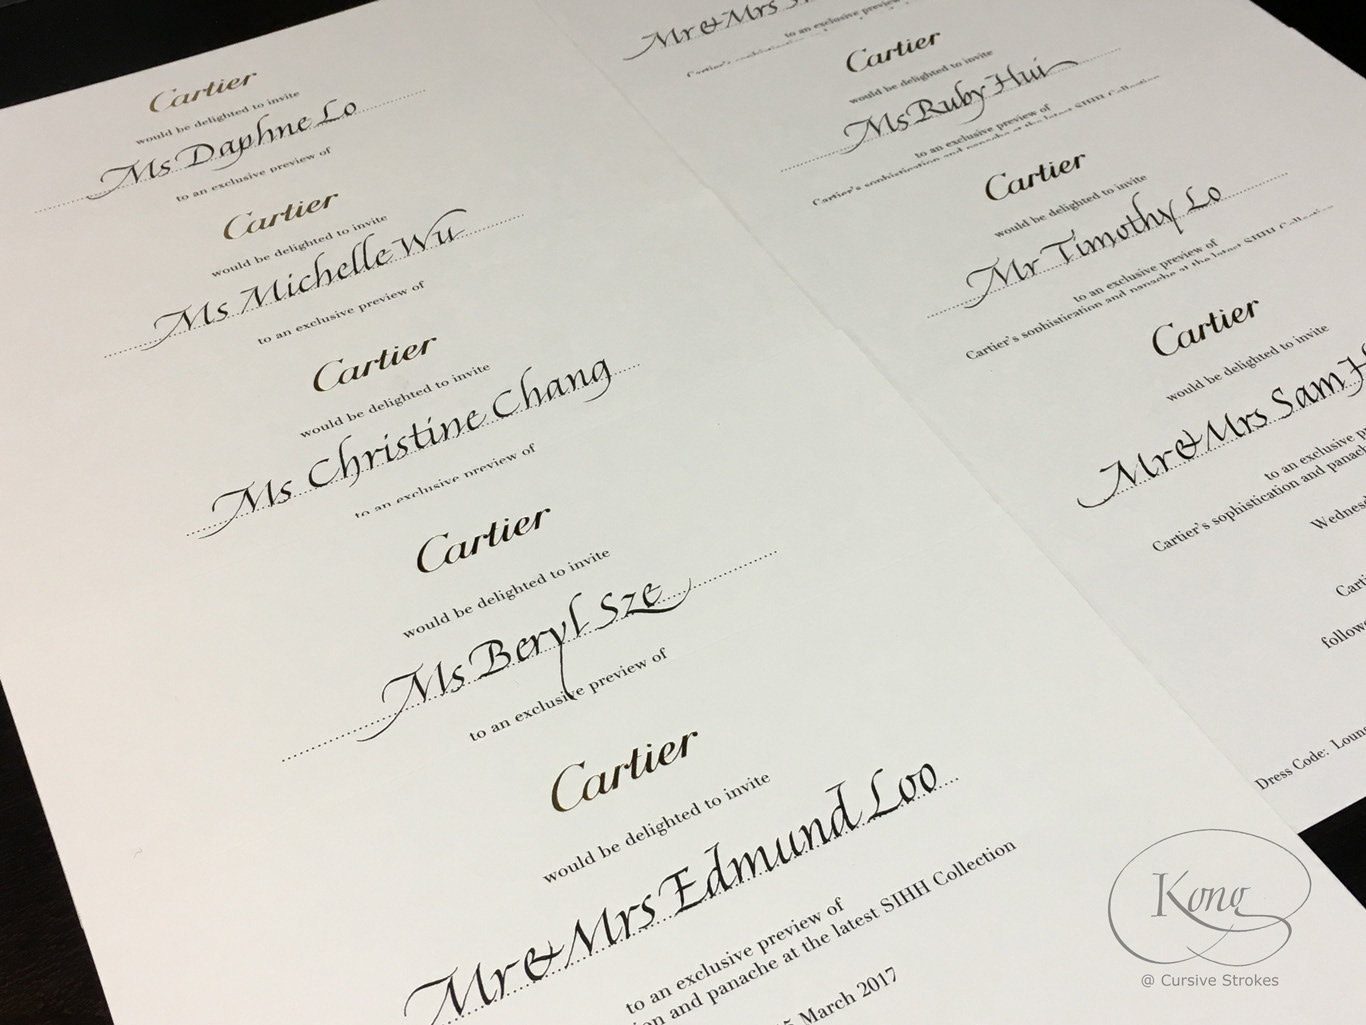 Cartier
would be delighted to invite
Ms Daphne Lo
to an exclusive preview of
Cartier
would be delighted to invite
Ms Michelle Wu
to an exclusive preview of
Cartier
would be delighted to invite
Ms Christine Chang
to an exclusive preview of
Cartier
would be delighted to invite
Ms Beryl Sze
to an exclusive preview of
Cartier
would be delighted to invite
Mr & Mrs Edmund Loo
to an exclusive preview of
and panache at the latest SIHH Collection
March 2017
Mr & Mrs
to an exclusive
Cartier's sophistication
Cartier
would be delighted to invite
Ms Ruby Hui
to an exclusive preview of
Cartier's sophistication and panache at the latest SIHH Collection
Cartier
would be delighted to invite
Mr Timothy Lo
to an exclusive preview of
Cartier's sophistication and panache at the latest SIHH Collection
Cartier
would be delighted to invite
Mr & Mrs Sam
to an exclusive
Cartier's sophistication and
Dress Code:
Kong
@ Cursive Strokes